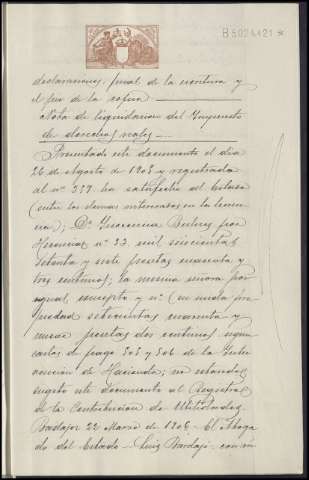 B5024421*
declaraciones, final de la escritura y
el fin de la copia
Nota de liquidacion del Impuesto
de derechos reales
Presentado este documento el dia
26 de Agosto de 1905 y registrado
al nº ha satisfecho al Estado
(entre los demas interesados en la heren
cia); Dª Buteres por
Herencias nº 33 mil seiscientas
setenta y siete pesetas cuarenta y
tres centimos; la misma señora por
igual concepto y nº (en nuda pro
piedad setecientas cuarenta y
nueve pesetas dos centimos segun
cartas de pago 505 y 506 de la Inter
vencion de Hacienda; no estando
sugeto este documento al Registro
de la Contribucion de Utilidades
Badajoz 22 Marzo de 1906. El Aboga
do del Estado = Luis Bardaji, con ru